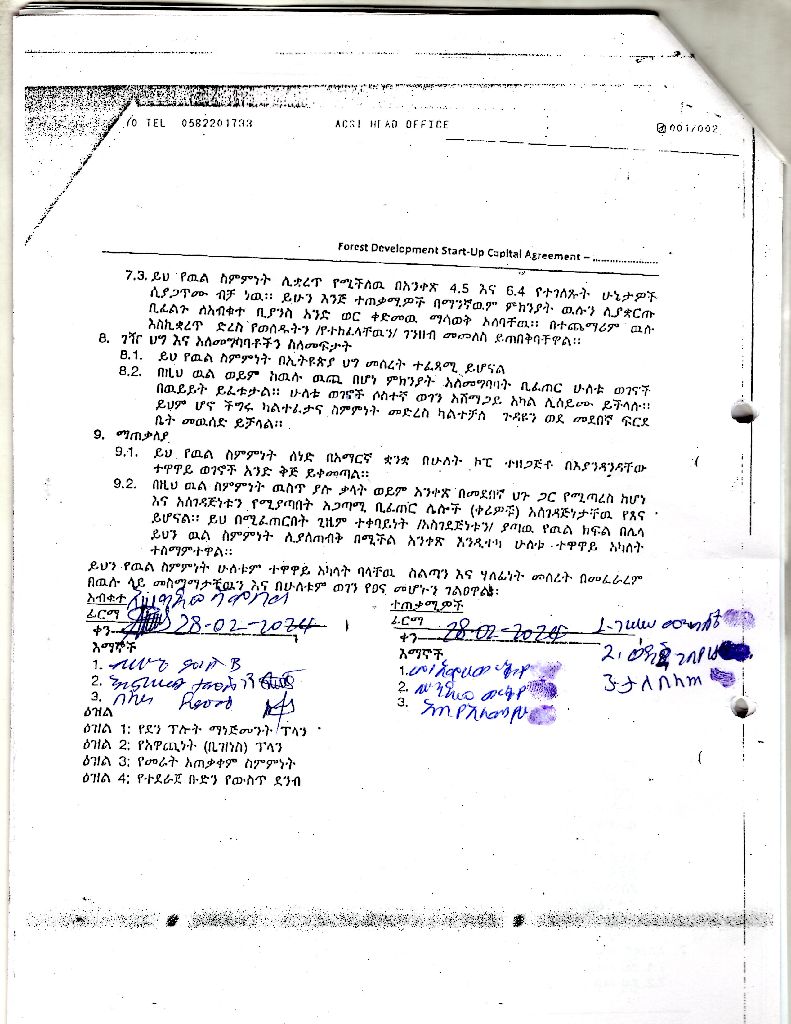 /0 TEL 0582201733 ACSI HEAD OFFICE 001/002
Forest Development Start-Up Capital Agreement – ......................
7.3. ይህ የዉል ስምምነት ሊቋረጥ የሚችለዉ በአንቀጽ 4.5 እና 6.4 የተገለጹት ሁኔታዎች
ሲያጋጥሙ ብቻ ነዉ። ይሁን እንጅ ተጠቃሚዎች በማንኛዉም ምክንያት ዉሉን ሲያቋርጡ
ቢፈልጉ ለአብቁተ ቢያንስ አንድ ወር ቀድመዉ ማሳወቅ አለባቸዉ። በተጨማሪም ዉሉ
እስኪቋረጥ ድረስ የወሰዱትን /የተከፈላቸዉን/ ገንዘብ መመለስ ይጠበቅባቸዋል።
8. ገዥ ህግ እና አለመግባባቶችን ስለመፍታት
8.1. ይህ የዉል ስምምነት በኢትዮጵያ ህግ መሰረት ተፈጻሚ ይሆናል
8.2. በዚህ ዉል ወይም ከዉሉ ዉጪ በሆነ ምክንያት አለመግባባት ቢፈጠር ሁለቱ ወገኖች
በዉይይት ይፈቱታል። ሁለቱ ወገኖች ሶስተኛ ወገን አሸማጋይ አካል ሊሰይሙ ይችላሉ።
ይህም ሆኖ ችግሩ ካልተፈታና ስምምነት መድረስ ካልተቻለ ጉዳዩን ወደ መደበኛ ፍርድ
ቤት መዉሰድ ይቻላል።
9. ማጠቃለያ
9.1. ይህ የዉል ስምምነት ሰነድ በአማርኛ ቋንቋ በሁለት ኮፒ ተዘጋጅቶ በእያንዳንዳቸው
ተዋዋይ ወገኖች አንድ ቅጅ ይቀመጣል።
9.2. በዚህ ዉል ስምምነት ዉስጥ ያሉ ቃላት ወይም አንቀጽ በመደበኛ ህጉ ጋር የሚጣረስ ከሆነ
እና አስገዳጅነቱን የሚያጣበት አጋጣሚ ቢፈጠር ሌሎች (ቀሪዎች) አስገዳጅነታቸዉ የጸና
ይሆናል። ይህ በሚፈጠርበት ጊዜም ተቀባይነት /አስገደጅነቱን/ ያጣዉ የዉል ክፍል በሌላ
ይህን ዉል ስምምነት ሊያስጠብቅ በሚችል አንቀጽ እንዲተካ ሁለቱ ተዋዋይ አካላት
ተስማምተዋል።
ይህን የዉል ስምምነት ሁለቱም ተዋዋይ አካላት ባላቸዉ ስልጣን እና ሃላፊነት መሰረት በመፈራረም
በዉሉ ላይ መስማማታቸዉን እና በሁለቱም ወገን የፀና መሆኑን ገልፀዋል፡
አብቁተ
ፊርማ
ቀን 28-02-2024
እማኞች
1. B
2.
3.
ተጠቃሚዎች
ፊርማ
ቀን 28-02-2024
እማኞች
1.
2.
3.
1.
2.
3.
ዕዝል
ዕዝል 1: የደን ፕሎት ማኔጅመንት ፕላን
ዕዝል 2; የአዋጪነት (ቢዝነስ) ፕላን
ዕዝል 3; የመሬት አጠቃቀም ስምምነት
ዕዝል 4; የተደራጀ ቡድን የውስጥ ደንብ